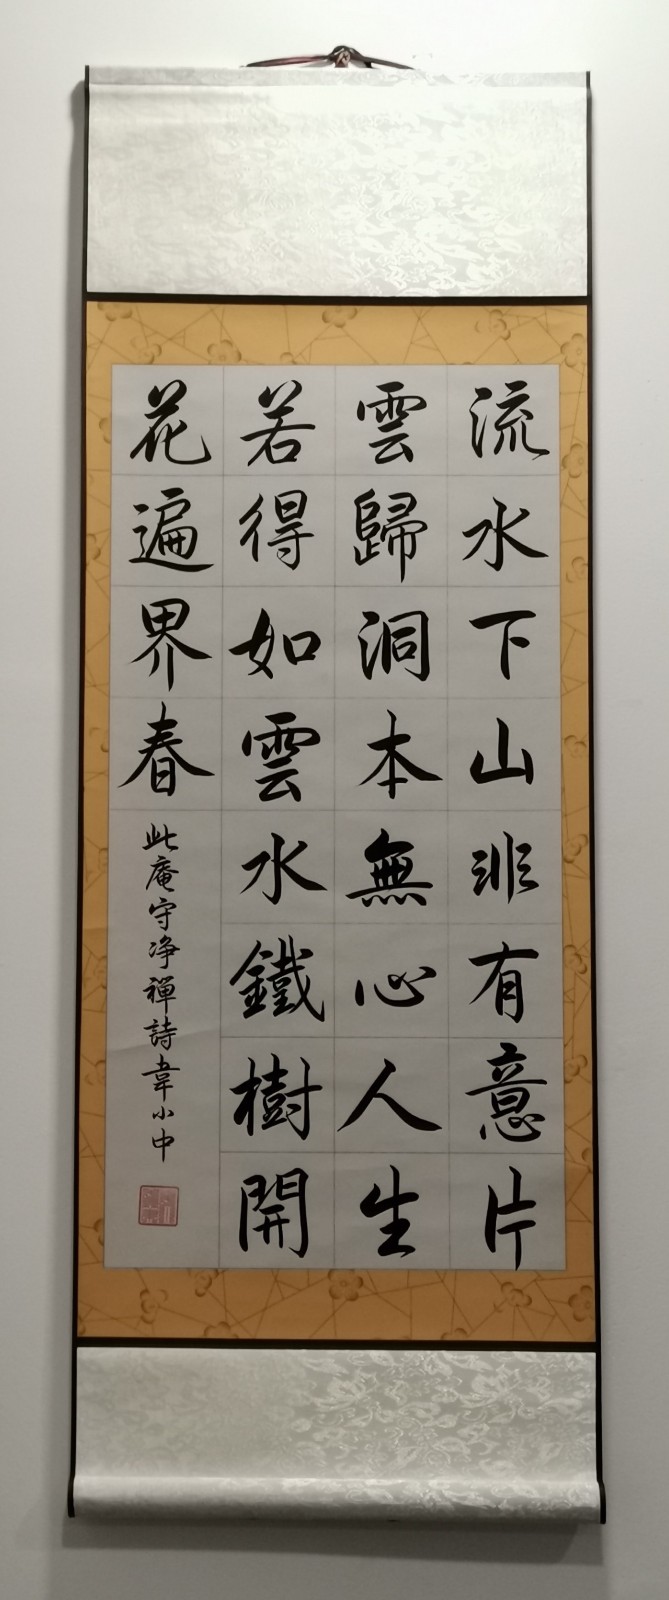 流水下山非有意片
雲歸洞本無心人生
若得如雲水鐵樹開
花遍界春
此庵守净禪詩韋小中